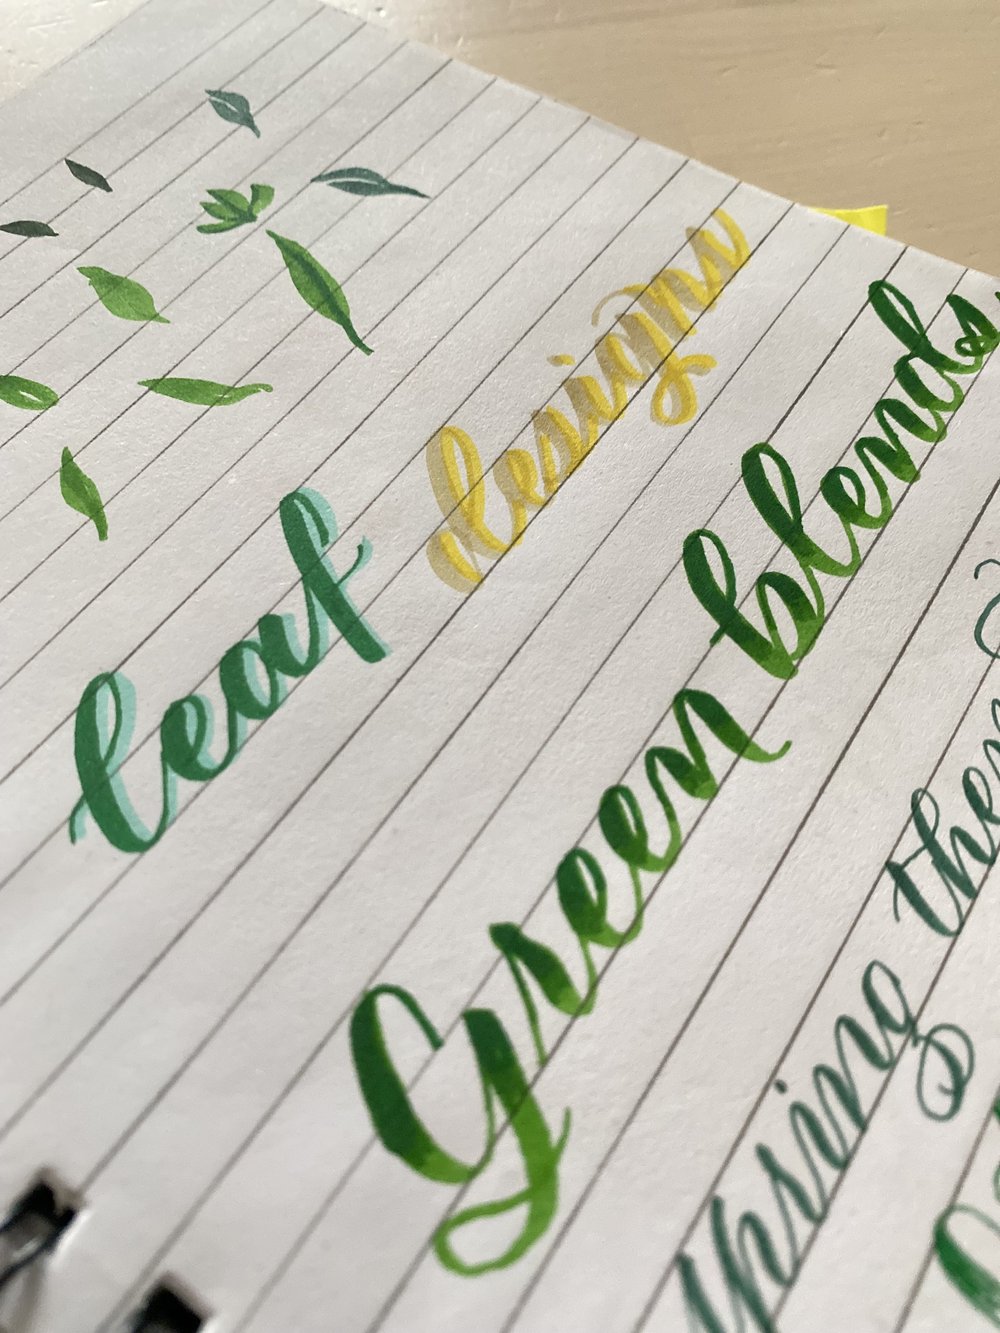 leaf designs
Green blends
Using